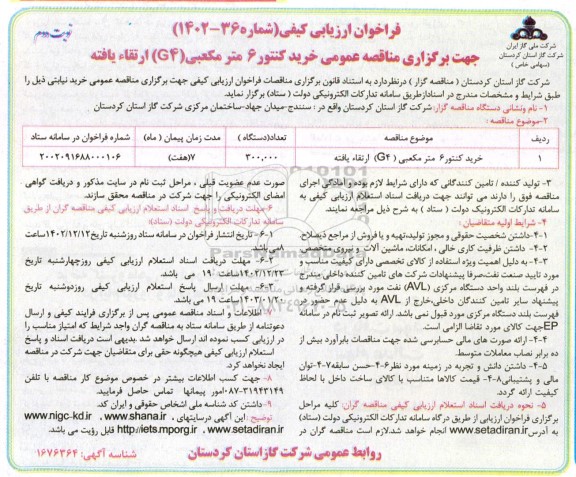 فراخوان ارزیابی کیفی(شماره ۳۶-۱۴۰۲)
نوبت دوم
جهت برگزاری مناقصه عمومی خرید کنتور ۶ متر مکعبی(G۴) ارتقاء یافته
شرکت ملی گاز ایران
شرکت گاز استان کردستان
(سهامی خاص)
شرکت گاز استان کردستان ( مناقصه گزار ) درنظردارد به استناد قانون برگزاری مناقصات فراخوان ارزیابی کیفی جهت برگزاری مناقصه عمومی خرید نیابتی ذیل را
طبق شرایط و مشخصات مندرج در اسناد ازطریق سامانه تدارکات الکترونیکی دولت ( ستاد ) برگزار نماید.
۱- نام ونشانی دستگاه مناقصه گزار: شرکت گاز استان کردستان واقع در : سنندج-میدان جهاد-ساختمان مرکزی شرکت گاز استان کردستان
۲-موضوع مناقصه :
ردیف موضوع مناقصه تعداد(دستگاه ) مدت زمان پیمان ( ماه) شماره فراخوان در سامانه ستاد
۱ خرید کنتور۶ متر مکعبی ( G۴) ارتقاء یافته ۳۰۰,۰۰۰ ۷(هفت) ۲۰۰۲۰۹۱۶۸۸۰۰۰۱۰۶
۳- تولید کننده / تامین کنندگانی که دارای شرایط لازم بوده و آمادگی اجرای
مناقصه فوق را دارند می توانند جهت دریافت اسناد استعلام ارزیابی کیفی به
سامانه تدارکات الکترونیک دولت ( ستاد ) به شرح ذیل مراجعه نمایند.
۴- شرایط اولیه متقاضیان :
۴-۱- داشتن شخصیت حقوقی و مجوز تولید،تهیه و یا فروش از مراجع ذیصلاح.
۴-۲- داشتن ظرفیت کاری خالی ، امکانات، ماشین آلات و نیروی متخصص.
۴-۳- به دلیل اهمیت ویژه استفاده از کالای تخصصی دارای کیفیت مناسب و
مورد تایید صنعت نفت،صرفا پیشنهادات شرکت های تامین کننده داخلی مندرج
در فهرست بلند واحد دستگاه مرکزی (AVL) نفت مورد بررسی قرار گرفته و
پیشنهاد سایر تامین کنندگان داخلی،خارج از AVL به دلیل عدم حضور در
فهرست بلند دستگاه مرکزی مورد قبول نمی باشد. ارائه تصویر ثبت نام در سامانه
EPجهت کالای مورد تقاضا الزامی است.
۴-۴- ارائه صورت های مالی حسابرسی شده جهت مناقصات بابرآورد بیش از
ده برابر نصاب معاملات متوسط.
۴-۵- داشتن دانش و تجربه در زمینه مورد نظر۶-۴-حسن سابقه۷-۴-توان
مالی و پشتیبانی۸-۴- قیمت کالاها متناسب با کالای ساخت داخل با لحاظ
کیفیت ارائه گردد.
۵- نحوه دریافت اسناد استعلام ارزیابی کیفی مناقصه گران: کلیه مراحل
برگزاری فراخوان ارزیابی از طریق درگاه سامانه تدارکات الکترونیکی دولت (ستاد)
به آدرس www.setadiran.ir انجام خواهد شد.لازم است مناقصه گران در
صورت عدم عضویت قبلی ، مراحل ثبت نام در سایت مذکور و دریافت گواهی
امضای الکترونیکی را جهت شرکت در مناقصه محقق سازند.
۶-مهلت دریافت و پاسخ اسناد استعلام ارزیابی کیفی مناقصه گران از طریق
سامانه تدارکات الکترونیکی دولت (ستاد):
۶-۱- تاریخ انتشار فراخوان در سامانه ستاد روزشنبه تاریخ۱۴۰۲/۱۲/۱۲ساعت
۰۸می باشد
۶-۲- مهلت دریافت اسناد استعلام ارزیابی کیفی روزچهارشنبه تاریخ
۱۴۰۲/۱۲/۲۳ساعت ۱۹ می باشد.
۶-۳- مهلت ارسال پاسخ استعلام ارزیابی کیفی روزدوشنبه تاریخ
۱۴۰۳/۰۱/۲۰ساعت ۱۹ می باشد.
۷- اطلاعات و اسناد مناقصه عمومی پس از برگزاری فرایند کیفی و ارسال
دعوتنامه از طریق سامانه ستاد به مناقصه گران واجد شرایط که امتیاز مناسب را
در ارزیابی کسب نموده اند ارسال خواهد شد.بدیهی است دریافت اسناد و پاسخ
استعلام ارزیابی کیفی هیچگونه حقی برای متقاضیان جهت شرکت در مناقصه
ایجاد نخواهد کرد.
۸- جهت کسب اطلاعات بیشتر در خصوص موضوع کار مناقصه با تلفن
۳۱۹۴۳۱۴۹-۰۸۷امور پیمانها تماس حاصل فرمایید.
۹- داشتن کد شناسه ملی اشخاص حقوقی و ایران کد.
توضیح :این آگهی درسایتهای ، www.shana.ir ، www.nigc-kd.ir
www.setadiran.ir ، http://iets.mporg.ir قابل رؤیت می باشد.
روابط عمومی شرکت گاز استان کردستان
شناسه آگهی: ۱۶۷۶۳۶۴